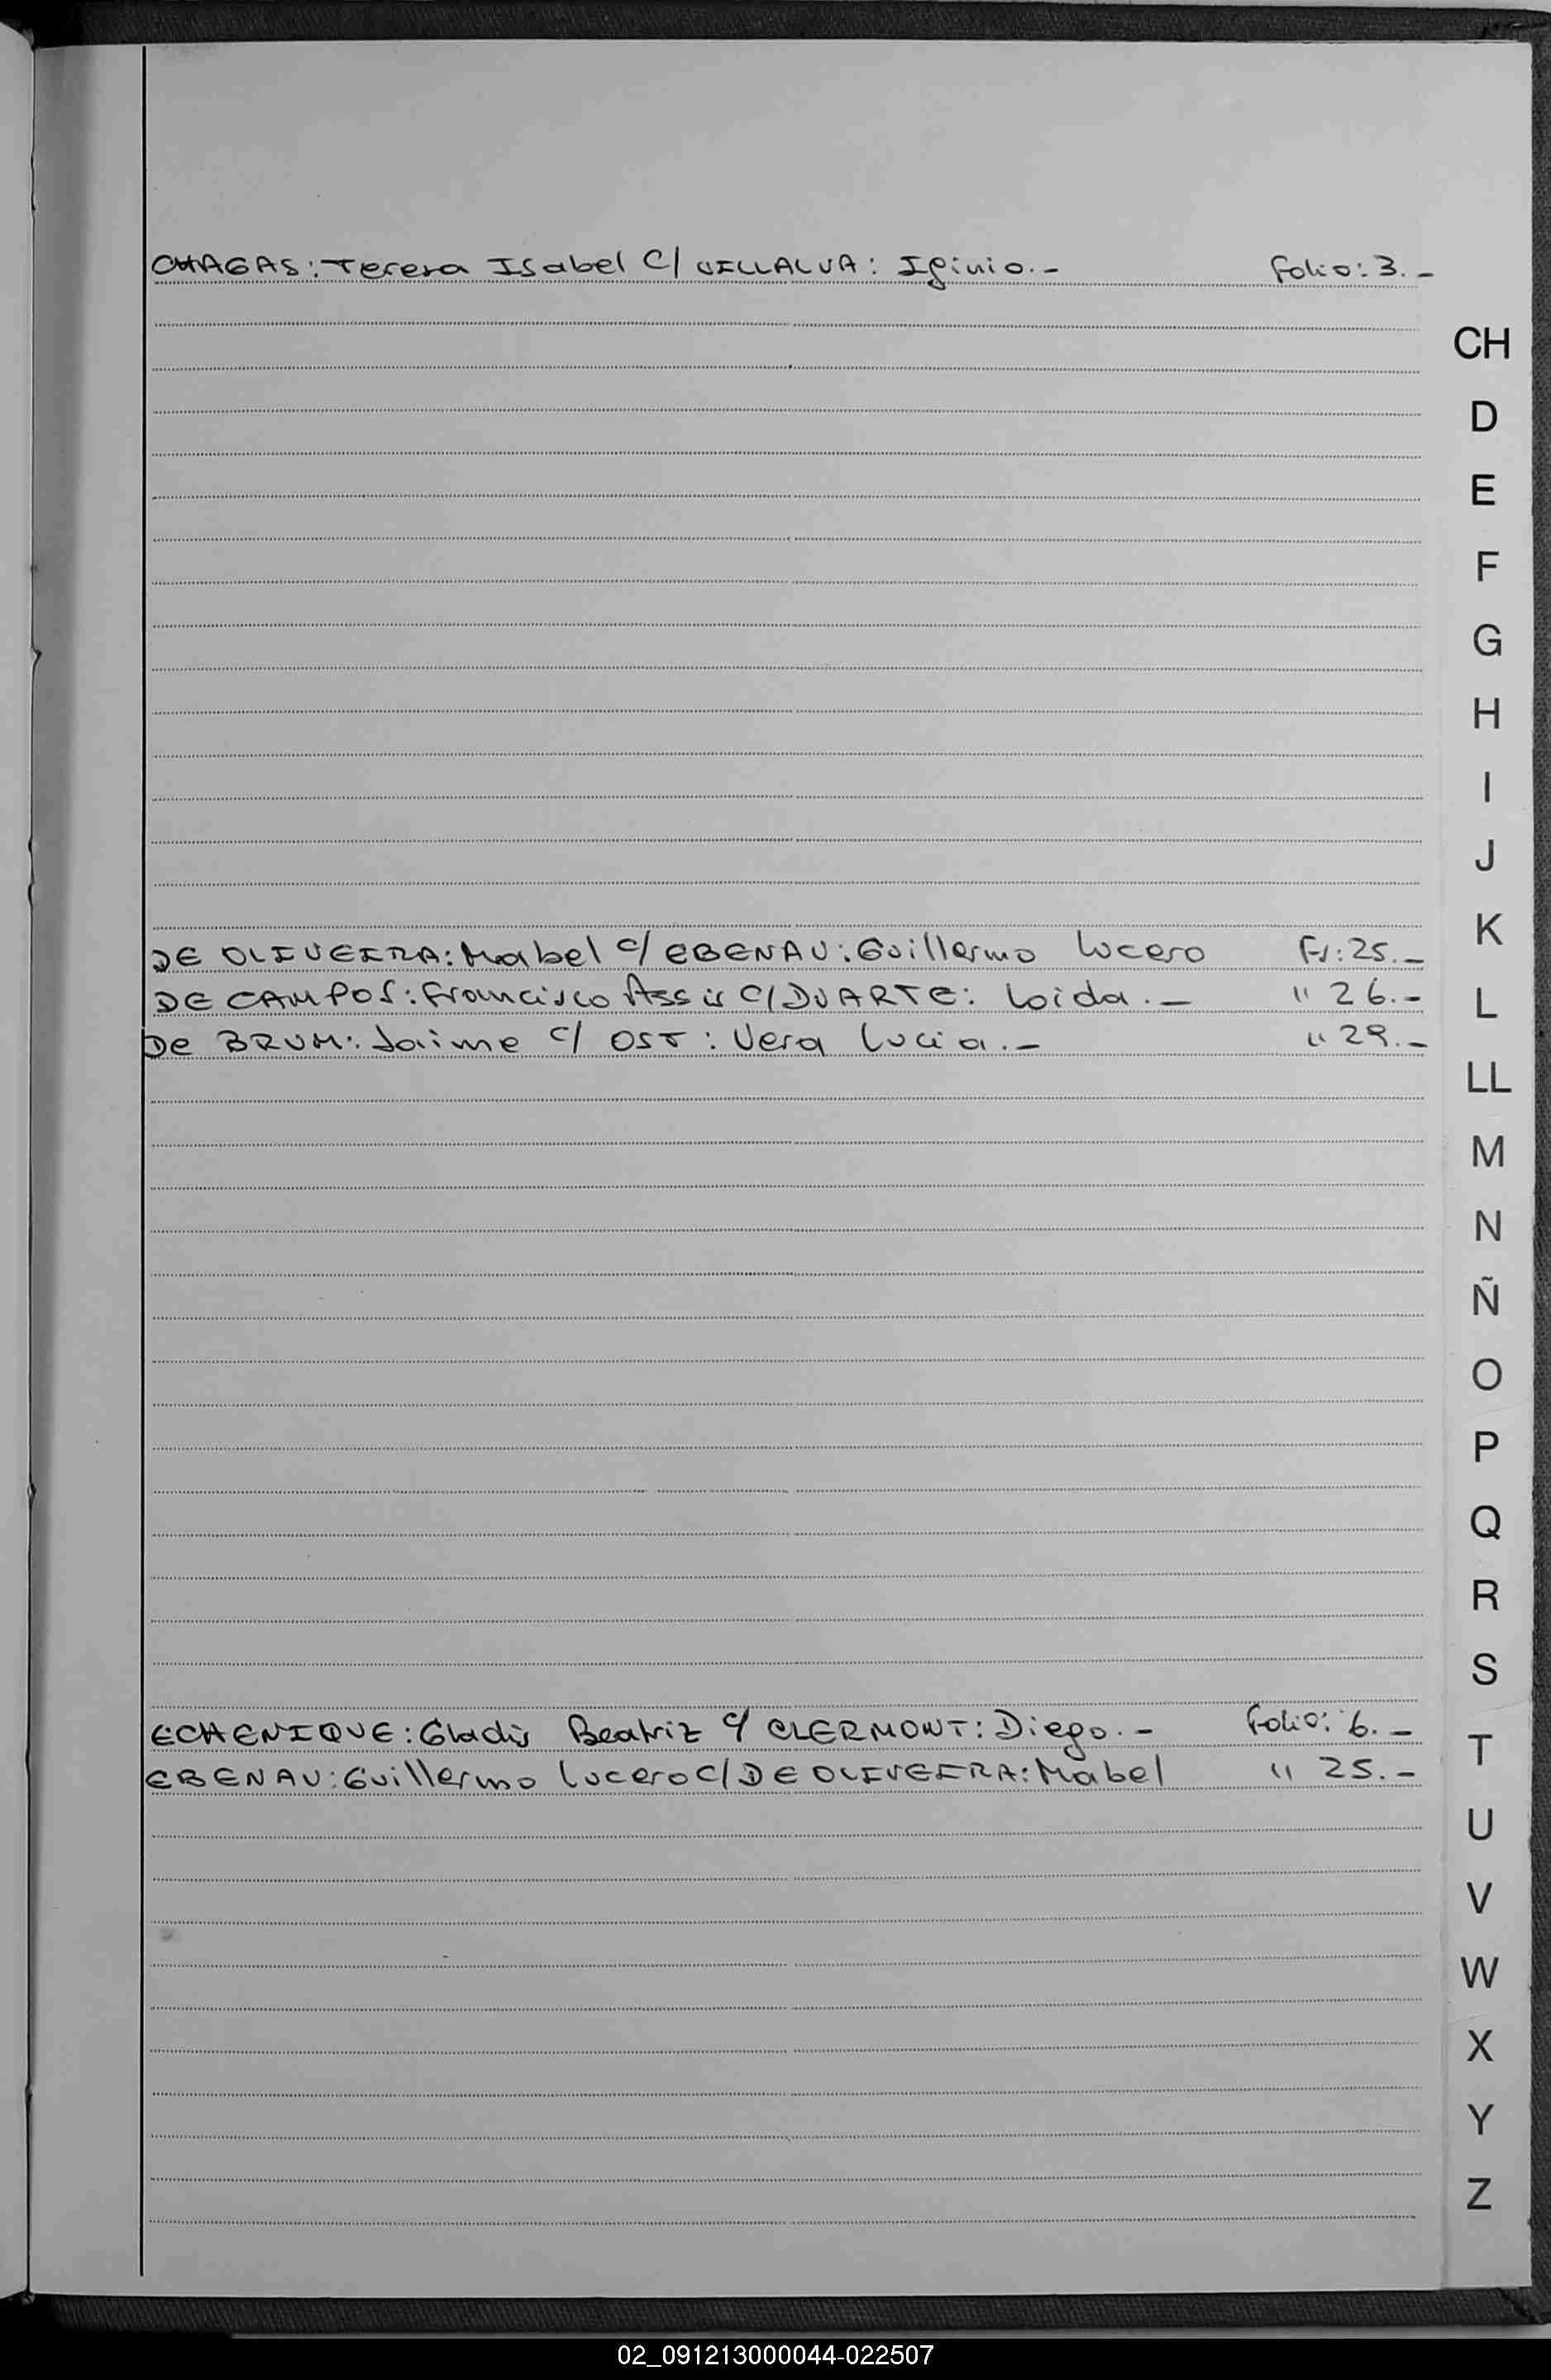 CHAGAS: Teresa Isabel C/ VILLALVA: Iginio.- Folio: 3.-
CH
D
E
F
G
H
I
J
K
DE OLIVEIRA: Mabel c/ EBENAU: Guillermo Lucero Fs: 25.-
DE CAMPOS: Francisco Assis C/ DUARTE: Loida.- " 26.-
L
De BRUM: Jaime c/ OST: Vera Lucia.- " 29.-
LL
M
N
Ñ
O
P
Q
R
S
ECHENIQUE: Gladis Beatriz c/ CLERMONT: Diego.- Folio: 6.-
T
EBENAU: Guillermo Lucero C/ DE OLIVEIRA: Mabel " 25.-
U
V
W
X
Y
Z
02_091213000044-022507